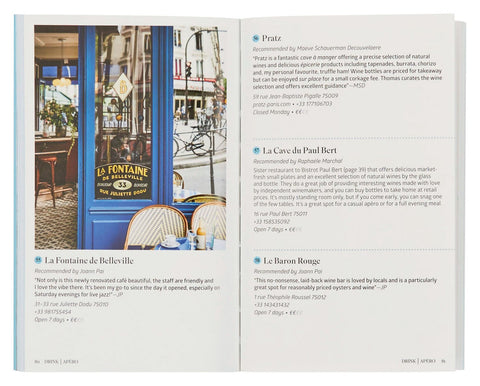 LA FONTAINE
DE BELLEVILLE
33
RUE JULIETTE DODU
55 La Fontaine de Belleville
Recommended by Joann Pai
"Not only is this newly renovated café beautiful, the staff are friendly and
I love the vibe there. It's been my go to since the day it opened, especially on
Saturday evenings for live jazz!"—JP
31–33 rue Juliette Dodu 75010
+33 981755454
Open 7 days • €€
80 DRINK | APÉRO
56 Pratz
Recommended by Maeve Schauerman Decouvelaere
"Pratz is a fantastic cave à manger offering a precise selection of natural
wines and delicious épicerie products including tapenades, burrata, chorizo
and, my personal favourite, truffle ham! Wine bottles are priced for takeaway
but can be enjoyed sur place for a small corkage fee. Thomas curates the wine
selection and offers excellent guidance"—MSD
59 rue Jean-Baptiste Pigalle 75009
pratz.paris.com • +33 177106703
Closed Monday • €€
57 La Cave du Paul Bert
Recommended by Raphaële Marchal
Sister restaurant to Bistrot Paul Bert (page 39) that offers delicious market-
fresh small plates and an excellent selection of natural wines by the glass
and bottle. They do a great job of providing interesting wines made with love
by independent winemakers, and you can buy bottles to take home at retail
prices. It's mostly standing room only, but if you come early, you can snag one
of the few tables. It's a great spot for a casual apéro or for a full evening meal
16 rue Paul Bert 75011
+33 158535092
Open 7 days • €€
58 Le Baron Rouge
Recommended by Joann Pai
"This no-nonsense, laid-back wine bar is loved by locals and is a particularly
great spot for reasonably priced oysters and wine"—JP
1 rue Théophile Roussel 75012
+33 143431432
Open 7 days • €
DRINK | APÉRO 81